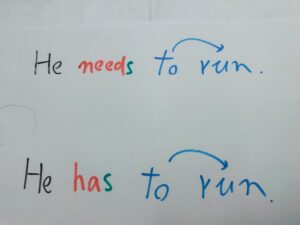 He needs to run.
He has to run.